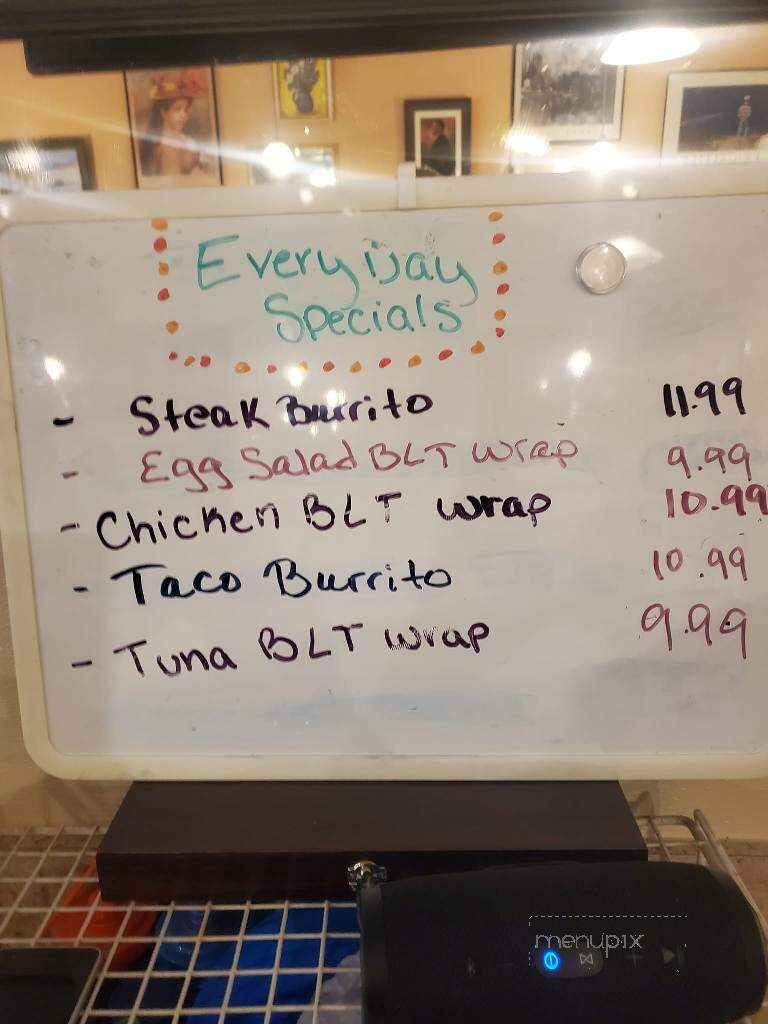 Every Day
Specials
- Steak Burrito 11.99
- Egg Salad BLT wrap 9.99
- Chicken BLT wrap 10.99
- Taco Burrito 10.99
- Tuna BLT wrap 9.99
menupix